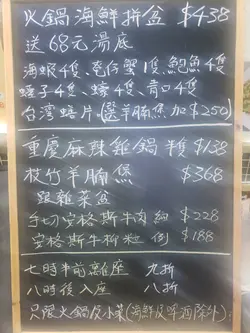 火鍋海鮮拼盆 $438
送68元湯底
海蝦4隻、花仔蟹1隻、鮑魚4隻
蟶子4隻、蠔4隻、青口4隻
台灣蜆片 (選羊腩煲加$250)
重慶麻辣雞鍋 半隻 $168
枝竹羊腩煲 $368
跟雜菜盆
手切安格斯牛肉 細 $228
安格斯牛柳粒 例 $188
七時半前離座 九折
八時後入座 八折
只限火鍋及小菜(海鮮及啤酒除外)